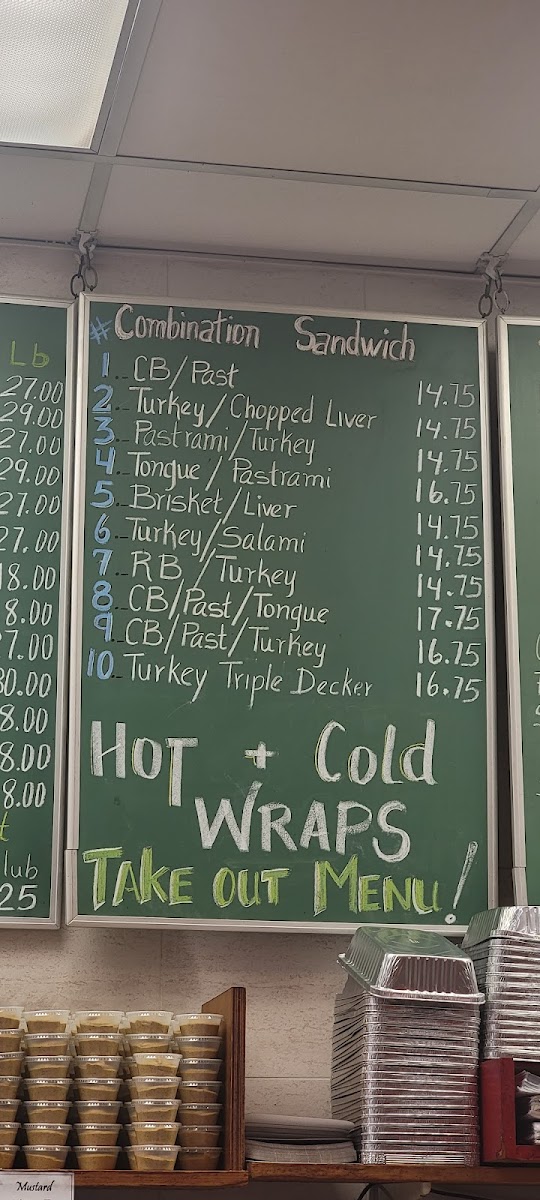 Lb
27.00
29.00
27.00
29.00
27.00
27.00
18.00
8.00
7.00
30.00
8.00
8.00
8.00
lub
25
# Combination Sandwich
1.. CB/Past 14.75
2.. Turkey/Chopped Liver 14.75
3.. Pastrami/Turkey 14.75
4.. Tongue/Pastrami 16.75
5.. Brisket/Liver 14.75
6.. Turkey/Salami 14.75
7.. RB/Turkey 14.75
8.. CB/Past/Tongue 17.75
9.. CB/Past/Turkey 16.75
10.. Turkey Triple Decker 16.75
HOT + Cold
WRAPS
TAKE OUT MENU!
Mustard